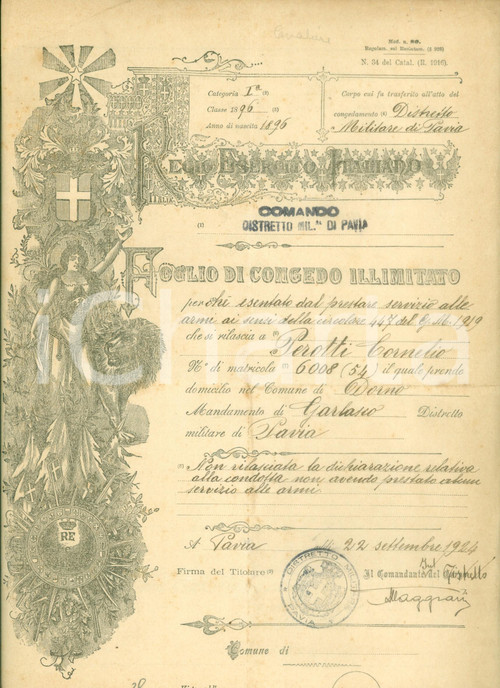 Mod. n.
N. 54 del Catal. (R. 1910)
Categoria Iª
Classe 1896
Anno di nascita 1896
Corpo cui fu trasferito all'atto del
congedamento Distretto
Militare di Pavia
REGIO ESERCITO ITALIANO
COMANDO
DISTRETTO MIL.RE DI PAVIA
FOGLIO DI CONGEDO ILLIMITATO
perchè esentato dal prestare servizio alle
armi ai sensi della circolare 447 del G. M. 1919
che si rilascia a Perotti Cornelio
N° di matricola 6008 (54) il quale prende
domicilio nel Comune di Dorno
Mandamento di Garlasco Distretto
militare di Pavia
Non rilasciata la dichiarazione relativa
alla condotta non avendo prestato alcun
servizio alle armi
A Pavia li 22 settembre 1924
Firma del Titolare
Il Comandante del
DISTRETTO MILITARE
PAVIA
RE
Comune di
iCharta